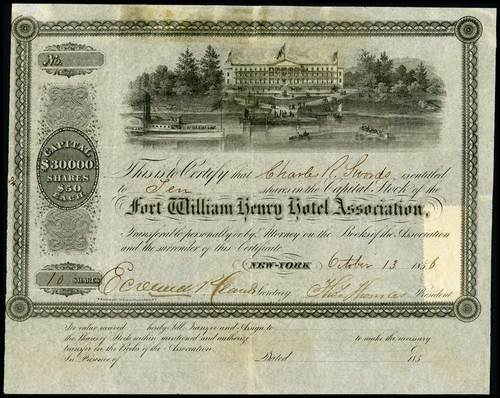 No.
CAPITAL
$30000
SHARES
$50
EACH
This is to Certify that Charles R. Swords is entitled
to Ten shares in the Capital Stock of the
Fort William Henry Hotel Association,
Transferable personally or by Attorney on the Books of the Association
and the surrender of this Certificate
NEW-YORK October 13 1856
10 SHARES
Secretary
President
For value received hereby Sell, Transfer and Assign to
the Shares of Stock within mentioned and authorize to make the necessary
transfer on the Books of the Association.
In Presence of Dated 185